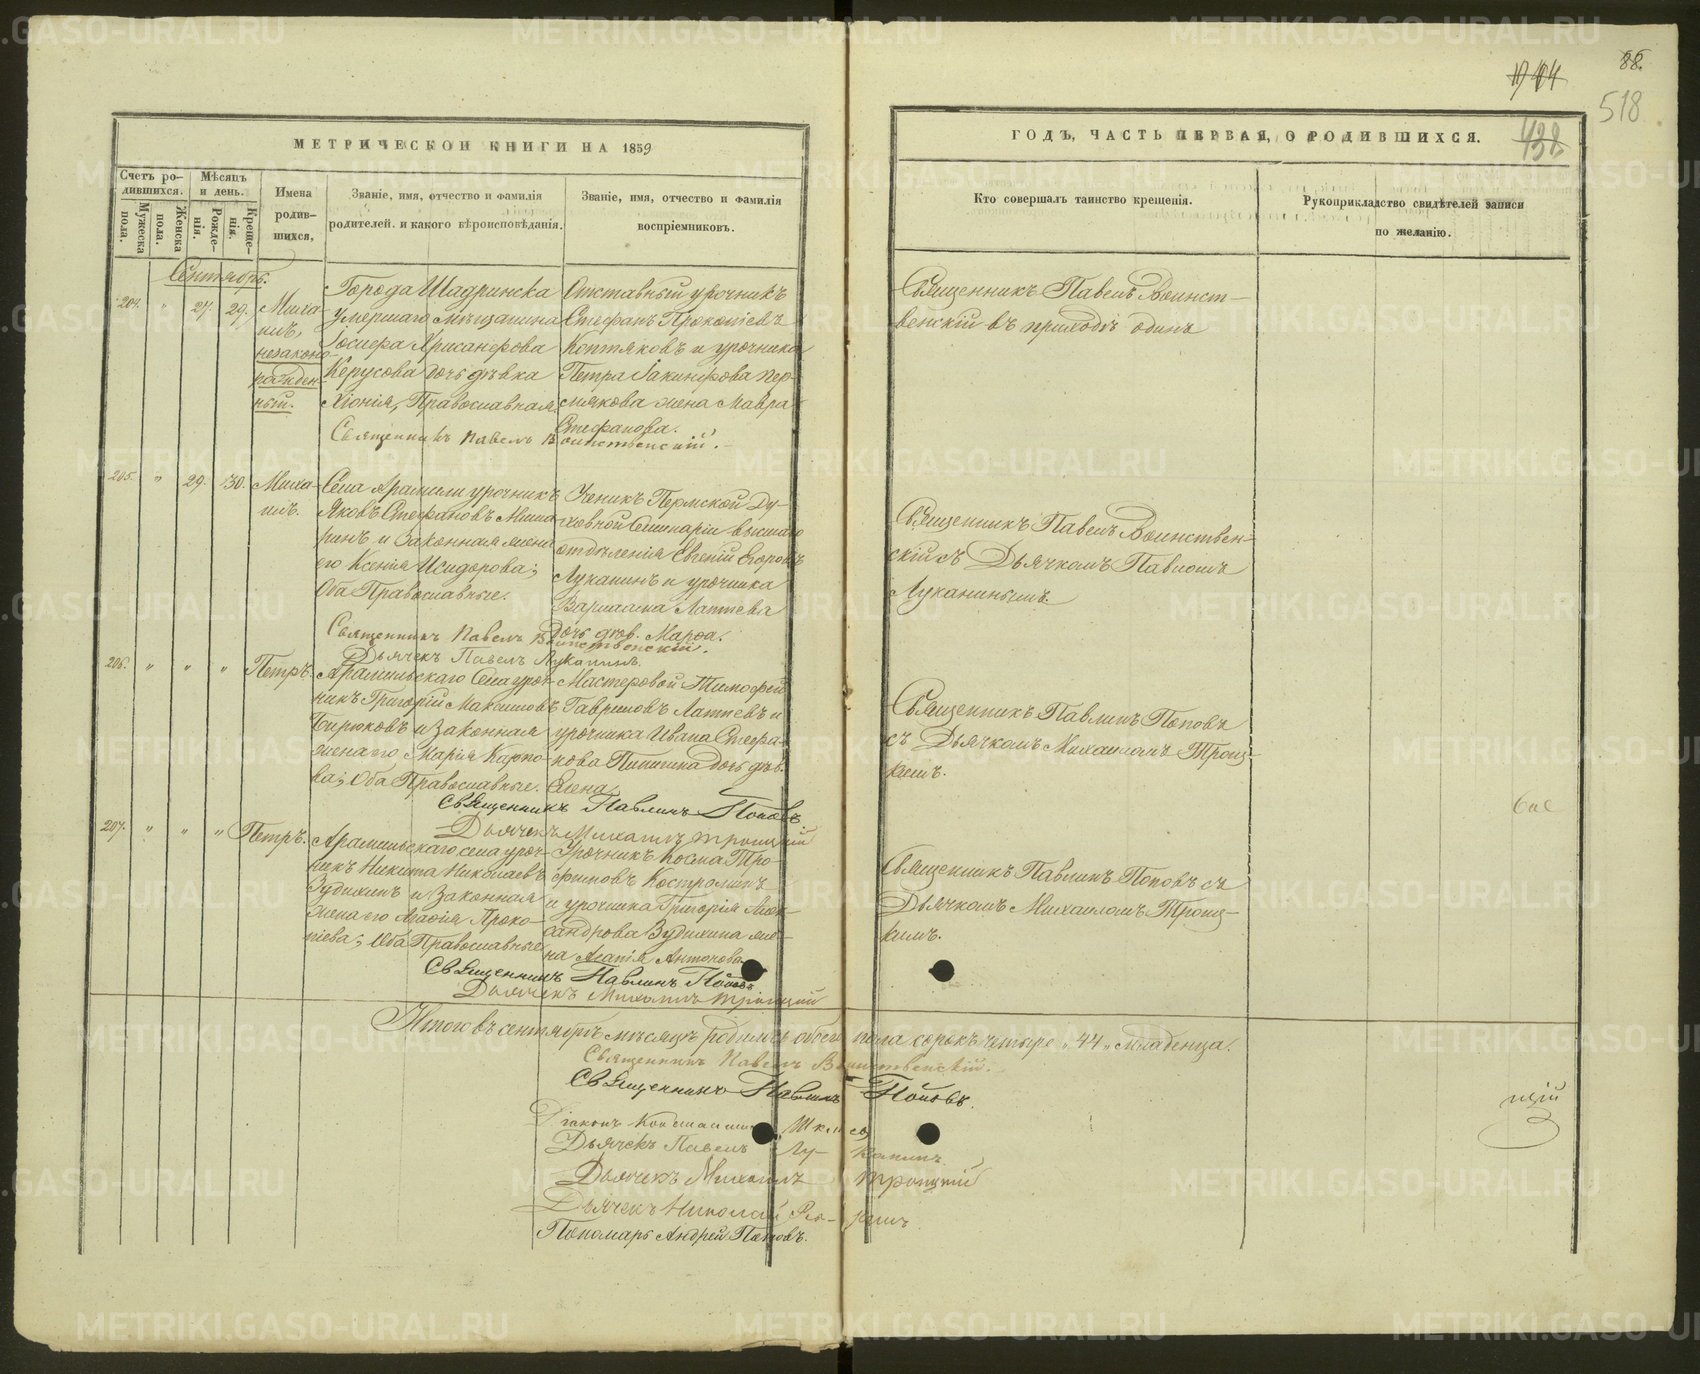 88.
518
МЕТРИЧЕСКОЙ КНИГИ НА 1859
ГОДЪ, ЧАСТЬ ПЕРВАЯ, О РОДИВШИХСЯ.
Счетъ ро-
дившихся.
Мужеска
пола.
Женска
пола.
Мѣсяцъ
и день.
Рожде-
нія.
Креще-
нія.
Имена
родив-
шихся.
Званіе, имя, отчество и фамилія
родителей. и какого вѣроисповѣданія.
Званіе, имя, отчество и фамилія
воспріемниковъ.
Кто совершалъ таинство крещенія.
Рукоприкладство свидѣтелей записи
по желанію.
Сентябрь.
204. " 27. 29.
Миха-
илъ,
незаконо-
рожден-
ный.
Города Шадринска
умершаго мѣщанина
Іосифа Хрисанфова
Керусова дочь дѣвка
Хіонія, Православная.
Отставный урочникъ
Стефанъ Прокопіевъ
Коптяковъ и урочника
Петра Іакинфова Пер-
мякова жена Мавра
Стефанова.
Священникъ Павелъ Воинственскій.
Священникъ Павелъ Воинст-
венскій въ приходѣ одинъ
205. " 29. 30.
Миха-
илъ.
Села Арамили урочникъ
Яковъ Стефановъ
и законная жена
его Ксенія Исидорова;
Оба Православные.
Ученикъ Пермской Ду-
ховной Семинаріи высшаго
отдѣленія Евгеній Егоровъ
Луканинъ и урочника
Варлаама Лаптева
дочь дѣв. Марѳа.
Священникъ Павелъ Воинственскій.
Дьячекъ Павелъ Луканинъ.
Священникъ Павелъ Воинствен-
скій съ Дьячкомъ Павломъ
Луканинымъ.
206. " " "
Петръ.
Арамильскаго Села уроч-
никъ Григорій Максимовъ
Бирюковъ и законная
жена его Марія Карпо-
ва; Оба Православные.
Мастеровой Тимофей
Гавриловъ Лаптевъ и
урочника Ивана Стефа-
нова дочь дѣв.
Елена
Священникъ Павлинъ Поповъ
Дьячекъ Михаилъ Троицкій
Священникъ Павлинъ Поповъ
съ Дьячкомъ Михаиломъ Троиц-
кимъ.
207. " " "
Петръ.
Арамильскаго села уроч-
никъ Никита Николаевъ
Зудихинъ и Законная
Жена его Агафія Проко-
піева; Оба Православные
Урочникъ Косма Тро-
фимовъ Костроминъ
и урочника Григорія Алек-
сандрова Зудихина же-
на Агапія Антонова
Священникъ Павлинъ Поповъ
Дьячекъ Михаилъ Троицкій
Священникъ Павлинъ Поповъ съ
Дьячкомъ Михаиломъ Троиц-
кимъ.
Итого въ сентябрѣ мѣсяцѣ родилось обоего пола сорокъ четыре „44„ младенца.
Священникъ Павелъ Воинственскій.
Священникъ Павлинъ Поповъ.
Діаконъ Константинъ
Дьячекъ Павелъ Лу-канинъ.
Дьячекъ Михаилъ Троицкій
Дьячекъ Николай
Пономарь Андрей Поповъ.
цій